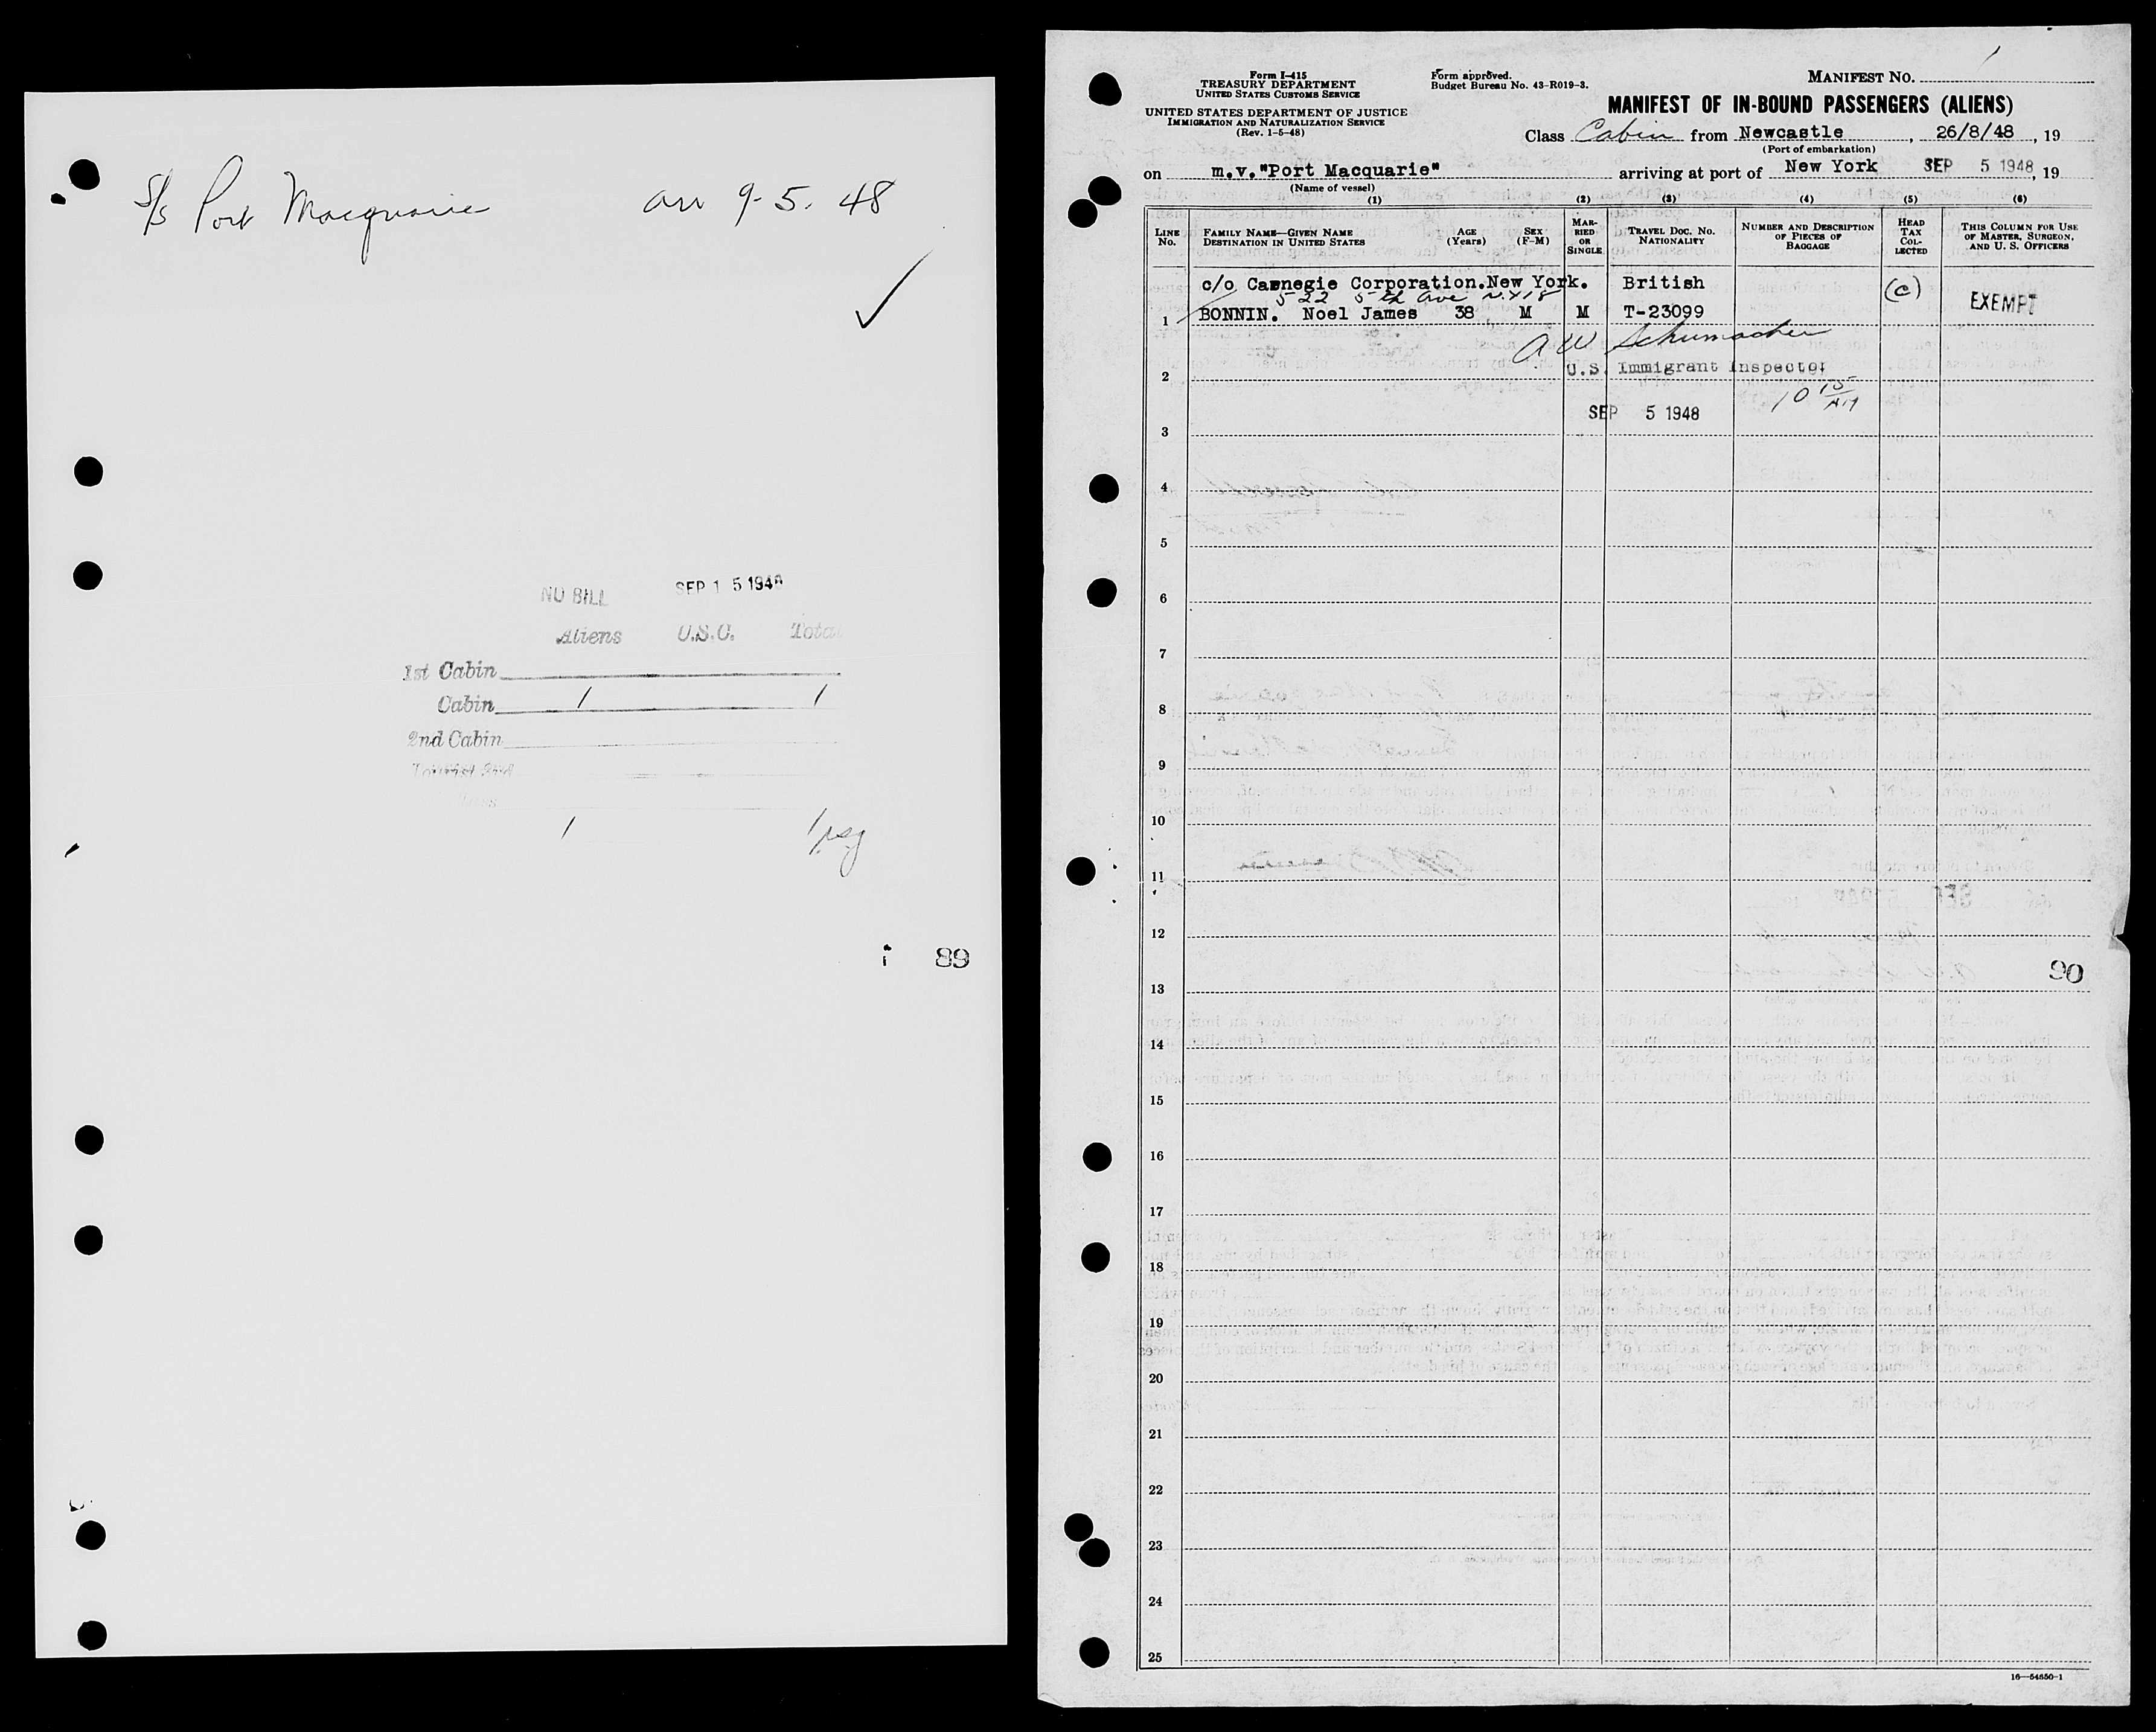 S/s Port Macquarie arr 9-5. 48
NO BILL SEP 1 5 1948
Aliens U.S.C. Total
1st Cabin
Cabin 1 1
2nd Cabin
1 1 psg
89
Form I-415
TREASURY DEPARTMENT
UNITED STATES CUSTOMS SERVICE
UNITED STATES DEPARTMENT OF JUSTICE
IMMIGRATION AND NATURALIZATION SERVICE
(Rev. 1-5-48)
Form approved.
Budget Bureau No. 43-R019-3.
MANIFEST NO. 1
MANIFEST OF IN-BOUND PASSENGERS (ALIENS)
Class Cabin from Newcastle, 26/8/48, 19
(Port of embarkation)
on m.v."Port Macquarie" arriving at port of New York SEP 5 1948, 19
(Name of vessel)
(1) (2) (3) (4) (5) (6)
LINE No. FAMILY NAME—GIVEN NAME DESTINATION IN UNITED STATES AGE (Years) SEX (F-M) MARRIED OR SINGLE TRAVEL DOC. NO. NATIONALITY NUMBER AND DESCRIPTION OF PIECES OF BAGGAGE HEAD TAX COLLECTED THIS COLUMN FOR USE OF MASTER, SURGEON, AND U. S. OFFICERS
c/o Carnegie Corporation.New York. British (C) EXEMPT
522 5th Ave N.Y 18
1 BONNIN. Noel James 38 M M T-23099
A W Schumacher
2 U.S. Immigrant Inspector
SEP 5 1948 10 15 AM
3
4
5
6
7
8
9
10
11
12
90
13
14
15
16
17
18
19
20
21
22
23
24
25
16—54650-1